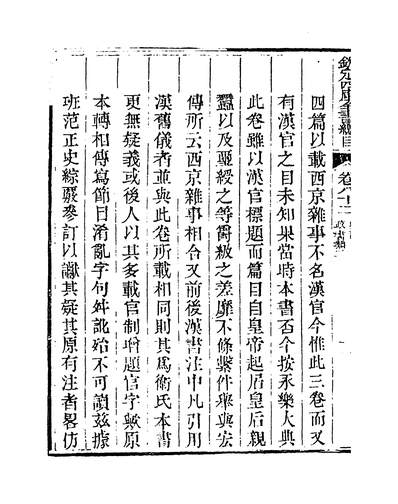 欽定四庫全書總目 卷八十二
四篇以載西京雜事不名漢官今惟此三卷而又
有漢官之目未知果當時本書否今按永樂大典
此卷雖以漢官標題而篇目自皇帝起居皇后親
蠶以及璽綬之等爵級之差靡不條繫件舉與宏
傳所云西京雜事相合又前後漢書注中凡引用
漢舊儀者並與此卷所載相同則其為衛氏本書
更無疑義或後人以其多載官制增題官字歟原
本轉相傳寫節目淆亂字句舛訛殆不可讀茲據
班范正史綜覈參訂以讞其疑其原有注者畧仿